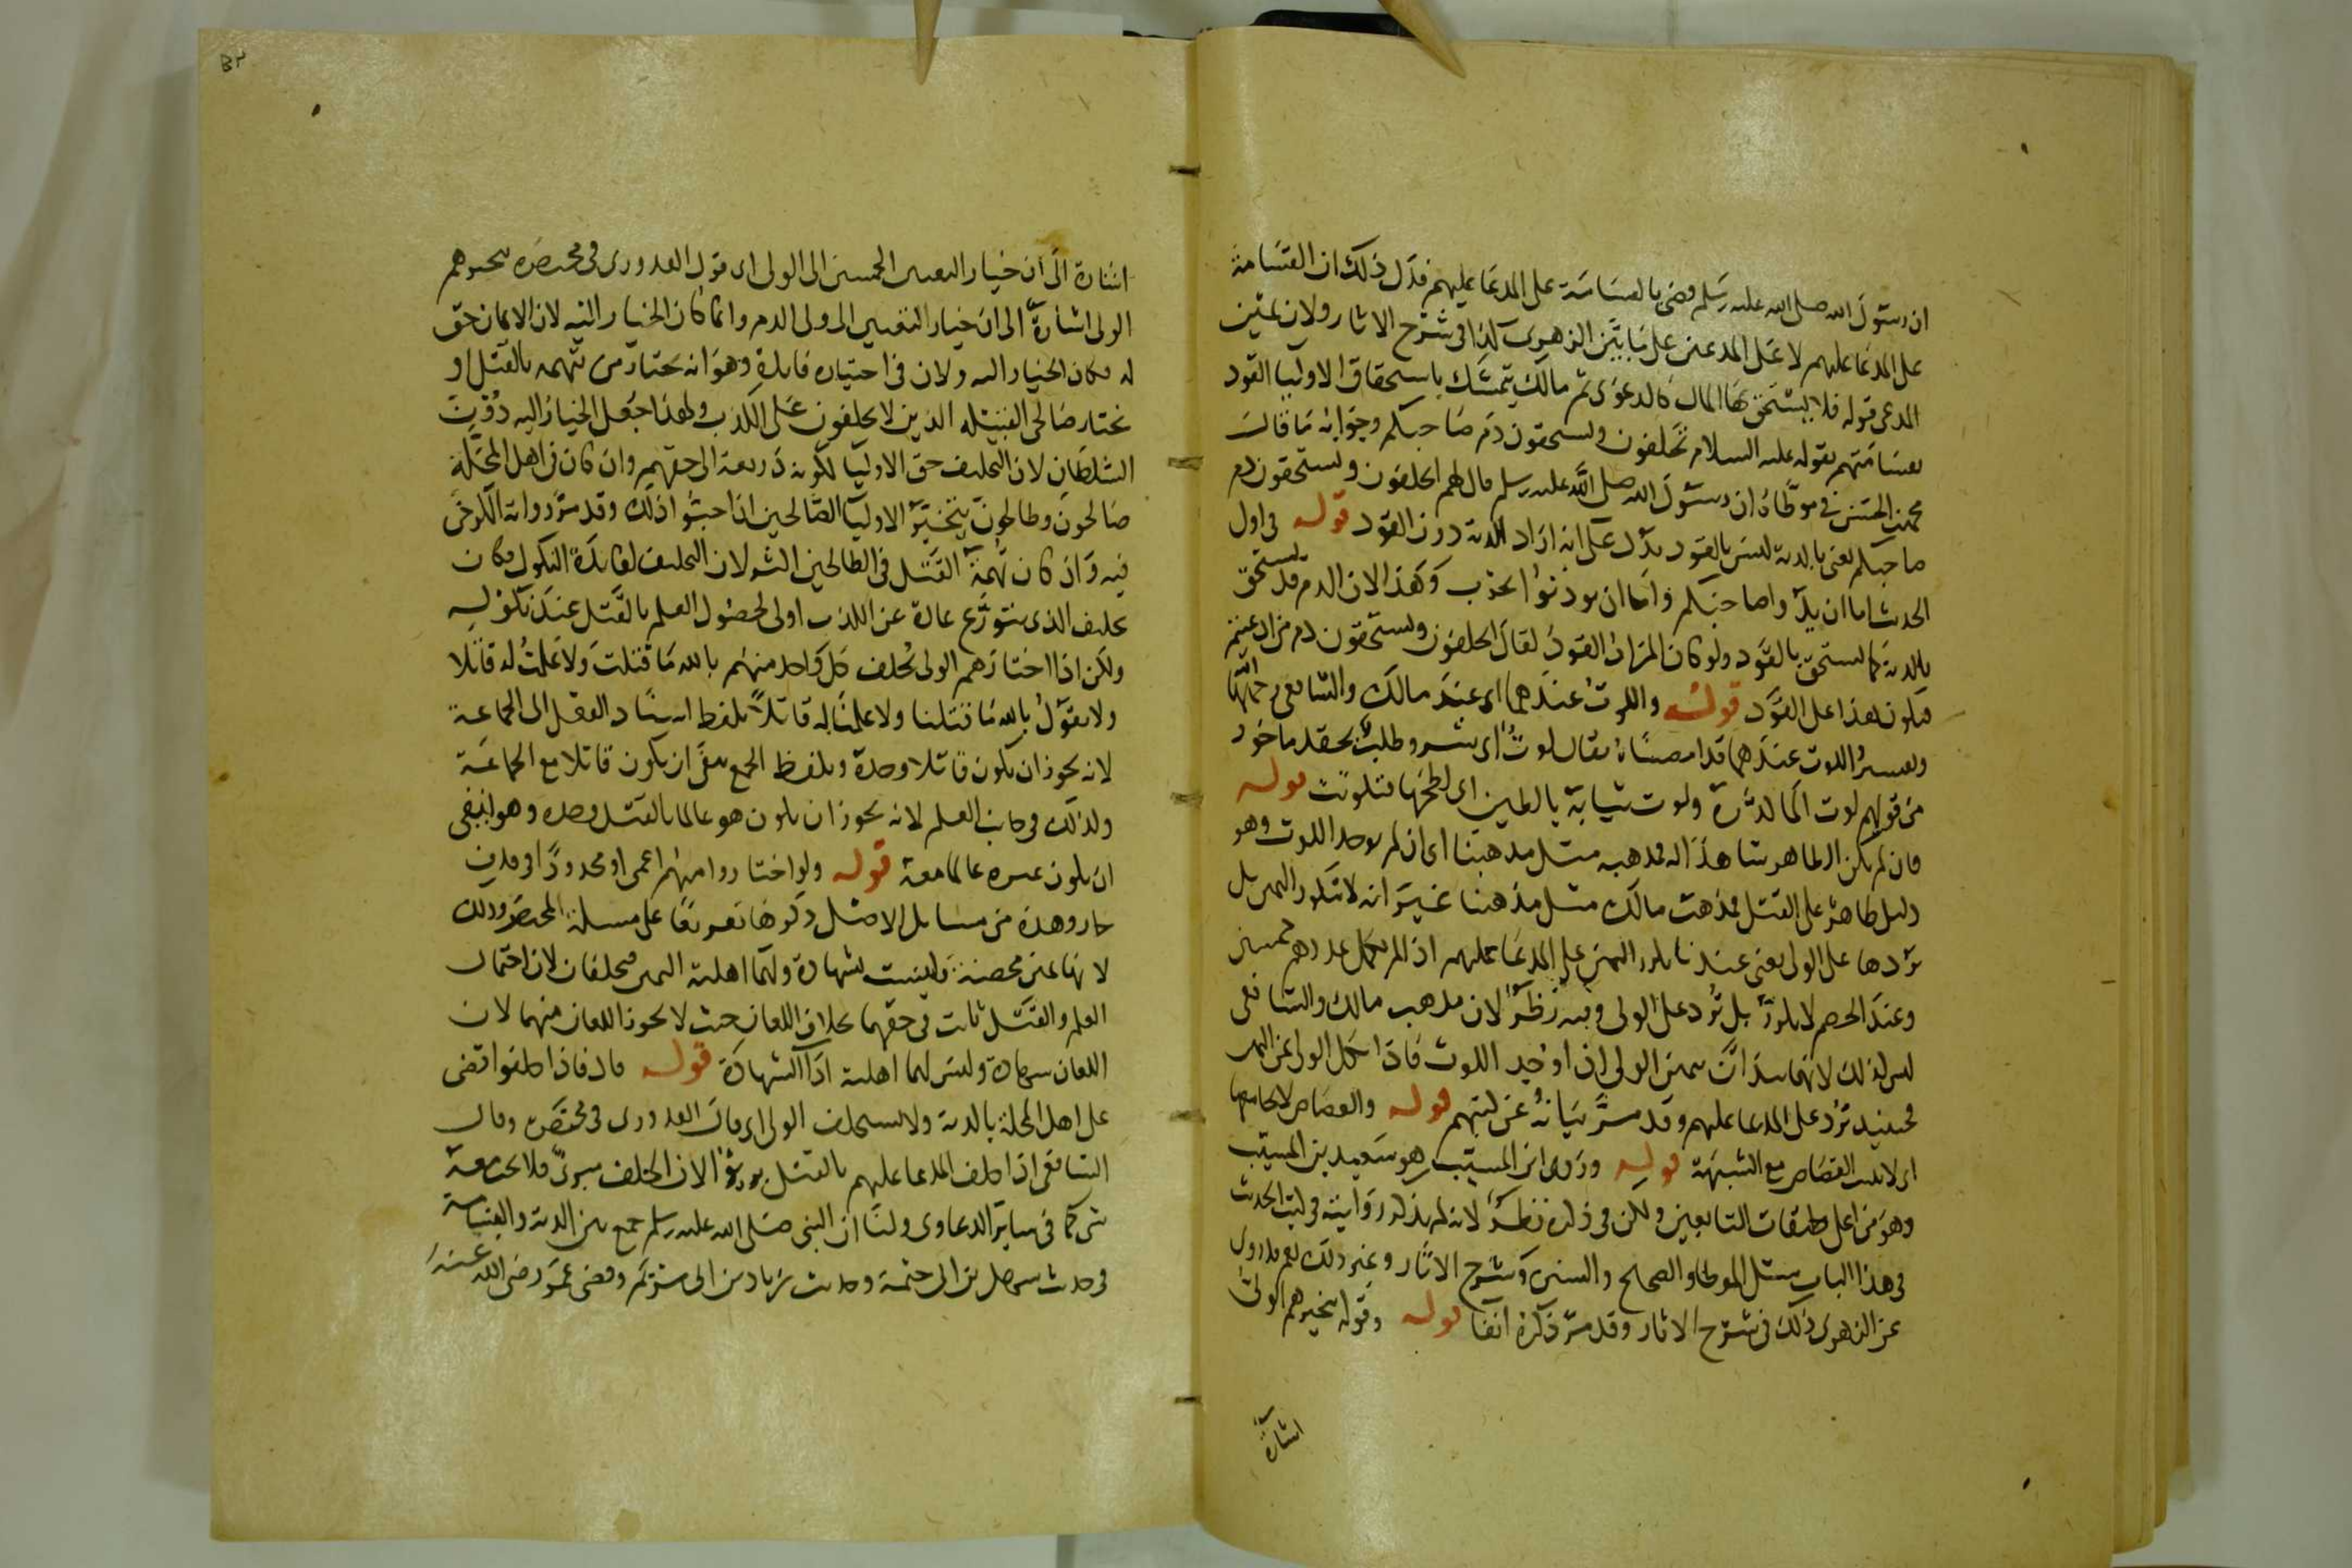 ان رسول الله صلى الله عليه وسلم قضى بالقسامة على المدعا عليهم فدل ذلك ان القسامة
على المدعا عليهم لا على المدعين على ما بين الزهري كذا في شرح الاثار ولان يمين
المدعي قوله فلا يستحق بها المال كالدعوى ثم مالك يتمسك باستحقاق الاوليا القود
بقسامتهم بقوله عليه السلام تحلفون وتستحقون دم صاحبكم وجوابه ما قال
محمد بن الحسن في موطاه ان رسول الله صلى الله عليه وسلم قال لهم اتحلفون وتستحقون دم
صاحبكم يعني بالدية ليس بالقود يدل على انه اراد الدية دون القود قوله في اول
الحديث اما ان يدوا صاحبكم واما ان يوذنوا بحرب وهذا لان الدم قد يستحق
بالدية كما يستحق بالقود ولو كان المراد القود لقال اتحلفون وتستحقون دم من ادعيتم
فيكون هذا على القود قوله واللوث عندهما اي عند مالك والشافعي رحمهما الله
وتفسير اللوث عندهما قد امضيناه يقال لوث اي شر وطلب بحقد ماخوذ
من قولهم لوث الما كدره ولوث ثيابه بالطين اي لطخها فتلوثت قوله
فان لم يكن الظاهر شاهدا له فمذهبه مثل مذهبنا اي ان لم يوجد اللوث وهو
دليل ظاهر على القتل فمذهب مالك مثل مذهبنا غير انه لا تكرر اليمين بل
تردها على الولي يعني عندنا يكرر اليمين على المدعا عليهم اذا لم يكمل عددهم خمسين
وعند الخصم لا يكرر بل ترد على الولي وفيه نظر لان مذهب مالك والشافعي
ليس كذلك لانهما يبدان بيمين الولي اذا وجد اللوث فاذا نكل الولي عن اليمين
فحينيذ ترد على المدعا عليهم وقد مر بيانه عن كتبهم قوله والقصاص لا يجامعها
اي لا يثبت القصاص مع الشبهة قوله وروى ابن المسيب هو سعيد بن المسيب
وهو من اعلى طبقات التابعين ولكن في ذكره نظر لانه لم يذكر روايته في كتب الحديث
في هذا الباب مثل الموطا والصحاح والسنن وشرح الاثار وغير ذلك نعم قد روى
عن الزهري ذلك في شرح الاثار وقد مر ذكره آنفا قوله وقوله يتخيرهم الولي
اشارة
اشارة الى ان خيار التعيين الخمسين الى الولي اي قول القدوري في مختصره يتخيرهم
الولي اشارة الى ان خيار التعيين الى ولي الدم وانما كان الخيار اليه لان الايمان حق
له فكان الخيار اليه ولان في اختياره فايدة وهو انه يختار من يتهمه بالقتل او
يختار صالحي القبيلة الذين لا يحلفون على الكذب ولهذا جعل الخيار اليه دون
السلطان لان التحليف حق الاوليا لكونه ذريعة الى حقهم وان كان في اهل المحلة
صالحون وطالحون يتخير الاوليا الصالحين اذا احبوا ذلك وقد مر رواية الكرخي
فيه وان كان تهمة القتل في الطالحين اشد لان التحليف لفايدة النكول فكان
تحليف الذي يتورع عادة عن الكذب اولى لحصول العلم بالقتل عند نكوله
ولكن اذا اختارهم الولي يحلف كل واحد منهم بالله ما قتلت ولا علمت له قاتلا
ولا يقول بالله ما قتلنا ولا علمنا له قاتلا بلفظ اسناد الفعل الى الجماعة
لانه يجوز ان يكون قاتلا وحده وبلفظ الجمع ينفى ان يكون قاتلا مع الجماعة
وكذلك في جانب العلم لانه يجوز ان يكون هو عالما بالقتل وحده وهو انما ينفي
ان يكون غيره عالما معه قوله ولو اختاروا منهم اعمى او محدودا في قذف
جاز وهذه من مسايل الاصل ذكرها تفريعا على مسلة المختصر وذلك
لانها يمين محضة وليست بشهادة ولهما اهلية اليمين فيحلفان لان احتمال
العلم والقتل ثابت في حقهما بخلاف اللعان حيث لا يجوز اللعان منهما لان
اللعان شهادة وليس لهما اهلية ادا الشهادة قوله قال فاذا حلفوا قضى
على اهل المحلة بالدية ولا يستحلف الولي اي قال القدوري في مختصره وقال
الشافعي اذا حلف المدعا عليهم بالقتل بروا لان الحلف مبري فلا يجب معه
شي كما في ساير الدعاوي ولنا ان النبي صلى الله عليه وسلم جمع بين الدية والقسامة
في حديث سهل بن ابي حثمة وحديث زياد بن ابي مريم وقضى عمر رضي الله عنه